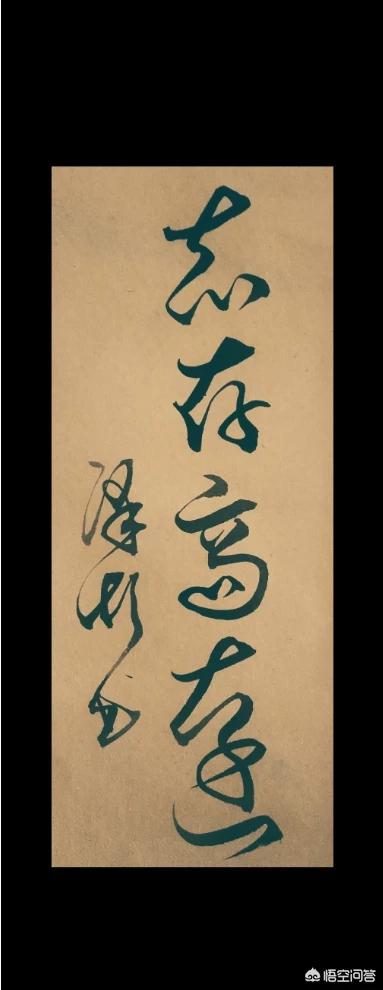 志存高远
泽彬书
悟空问答